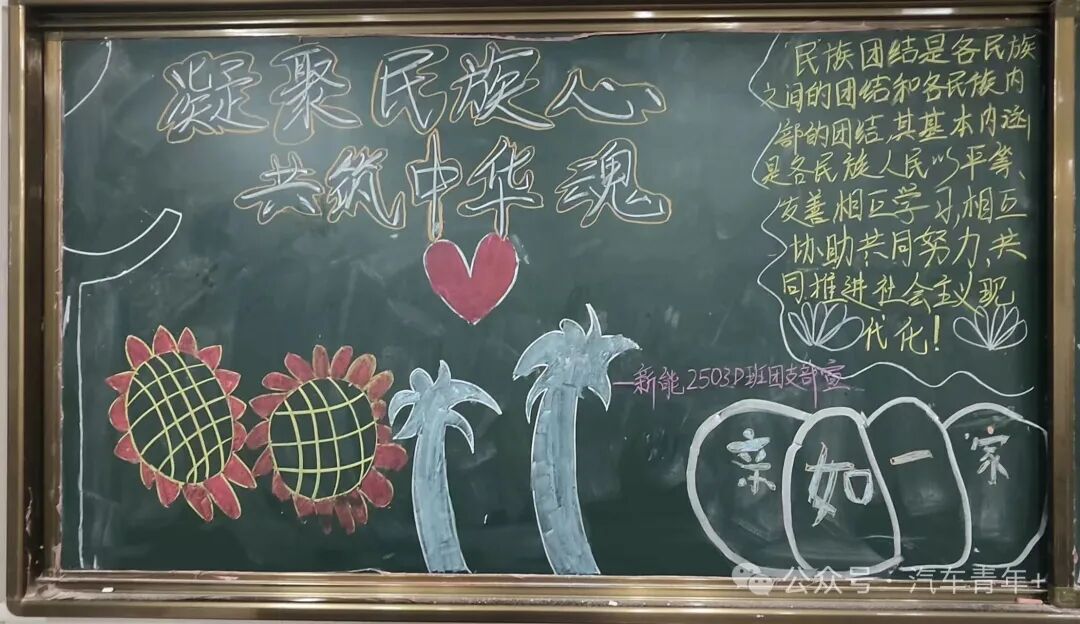 凝聚民族心
共筑中华魂
民族团结是各民族
之间的团结和各民族内
部的团结,其基本内涵
是各民族人民的平等、
友善相互学习,相互
协助共同努力、共
同推进社会主义现
代化!
一新能2503D班团支部宣
亲如一家
公众号·汽车青年+